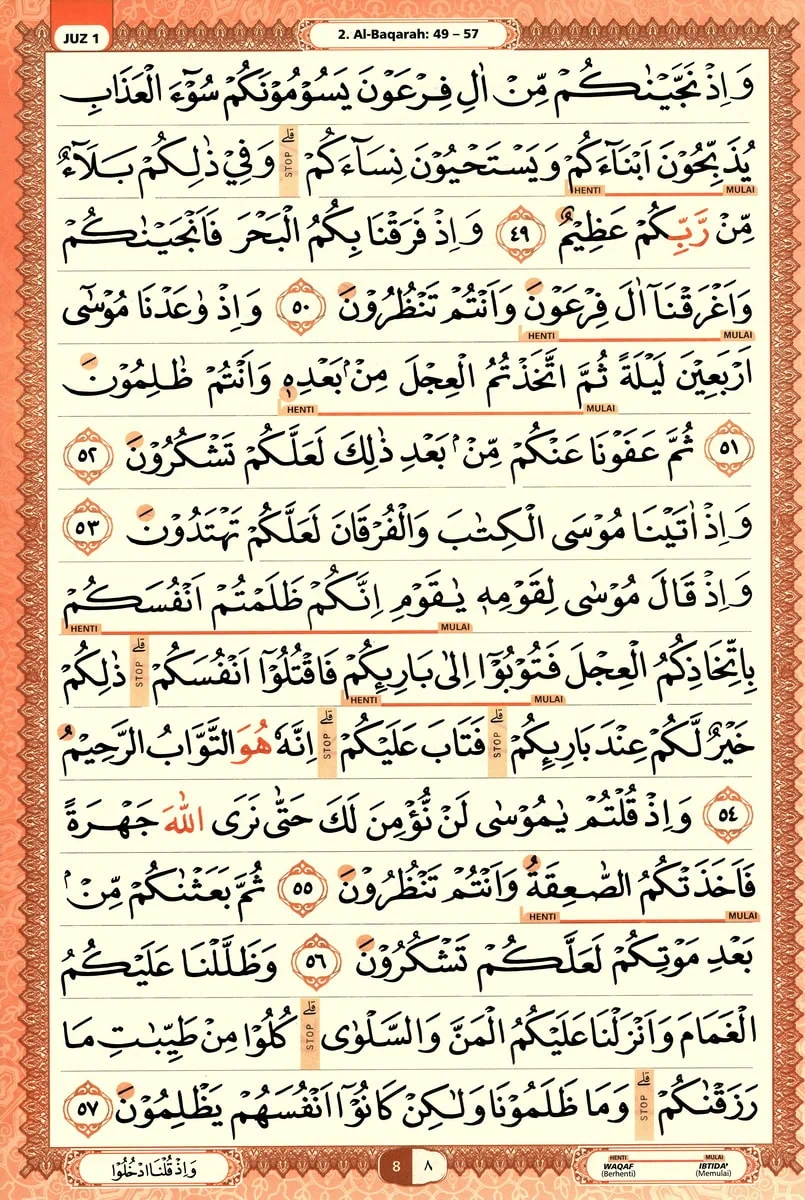 JUZ 1
2. Al-Baqarah: 49 – 57
وَاِذْ نَجَّيْنٰكُمْ مِّنْ اٰلِ فِرْعَوْنَ يَسُوْمُوْنَكُمْ سُوْۤءَ الْعَذَابِ
يُذَبِّحُوْنَ اَبْنَاۤءَكُمْ وَيَسْتَحْيُوْنَ نِسَاۤءَكُمْ ۗ STOP وَفِيْ ذٰلِكُمْ بَلَاۤءٌ
HENTI MULAI
مِّنْ رَّبِّكُمْ عَظِيْمٌ ٤٩ وَاِذْ فَرَقْنَا بِكُمُ الْبَحْرَ فَاَنْجَيْنٰكُمْ
وَاَغْرَقْنَآ اٰلَ فِرْعَوْنَ وَاَنْتُمْ تَنْظُرُوْنَ ٥٠ وَاِذْ وٰعَدْنَا مُوْسٰٓى
HENTI MULAI
اَرْبَعِيْنَ لَيْلَةً ثُمَّ اتَّخَذْتُمُ الْعِجْلَ مِنْۢ بَعْدِهٖ وَاَنْتُمْ ظٰلِمُوْنَ
HENTI MULAI
٥١ ثُمَّ عَفَوْنَا عَنْكُمْ مِّنْۢ بَعْدِ ذٰلِكَ لَعَلَّكُمْ تَشْكُرُوْنَ ٥٢
وَاِذْ اٰتَيْنَا مُوْسَى الْكِتٰبَ وَالْفُرْقَانَ لَعَلَّكُمْ تَهْتَدُوْنَ ٥٣
وَاِذْ قَالَ مُوْسٰى لِقَوْمِهٖ يٰقَوْمِ اِنَّكُمْ ظَلَمْتُمْ اَنْفُسَكُمْ
HENTI MULAI
بِاتِّخَاذِكُمُ الْعِجْلَ فَتُوْبُوْٓا اِلٰى بَارِىِٕكُمْ فَاقْتُلُوْٓا اَنْفُسَكُمْ ۗ STOP ذٰلِكُمْ
HENTI MULAI
خَيْرٌ لَّكُمْ عِنْدَ بَارِىِٕكُمْ ۗ STOP فَتَابَ عَلَيْكُمْ ۗ STOP اِنَّهٗ هُوَ التَّوَّابُ الرَّحِيْمُ
٥٤ وَاِذْ قُلْتُمْ يٰمُوْسٰى لَنْ نُّؤْمِنَ لَكَ حَتّٰى نَرَى اللّٰهَ جَهْرَةً
فَاَخَذَتْكُمُ الصّٰعِقَةُ وَاَنْتُمْ تَنْظُرُوْنَ ٥٥ ثُمَّ بَعَثْنٰكُمْ مِّنْۢ
HENTI MULAI
بَعْدِ مَوْتِكُمْ لَعَلَّكُمْ تَشْكُرُوْنَ ٥٦ وَظَلَّلْنَا عَلَيْكُمُ
الْغَمَامَ وَاَنْزَلْنَا عَلَيْكُمُ الْمَنَّ وَالسَّلْوٰى ۗ STOP كُلُوْا مِنْ طَيِّبٰتِ مَا
رَزَقْنٰكُمْ ۗ STOP وَمَا ظَلَمُوْنَا وَلٰكِنْ كَانُوْٓا اَنْفُسَهُمْ يَظْلِمُوْنَ ٥٧
وَاِذْ قُلْنَا ادْخُلُوْا
8 ٨
HENTI MULAI
WAQAF IBTIDA'
(Berhenti) (Memulai)